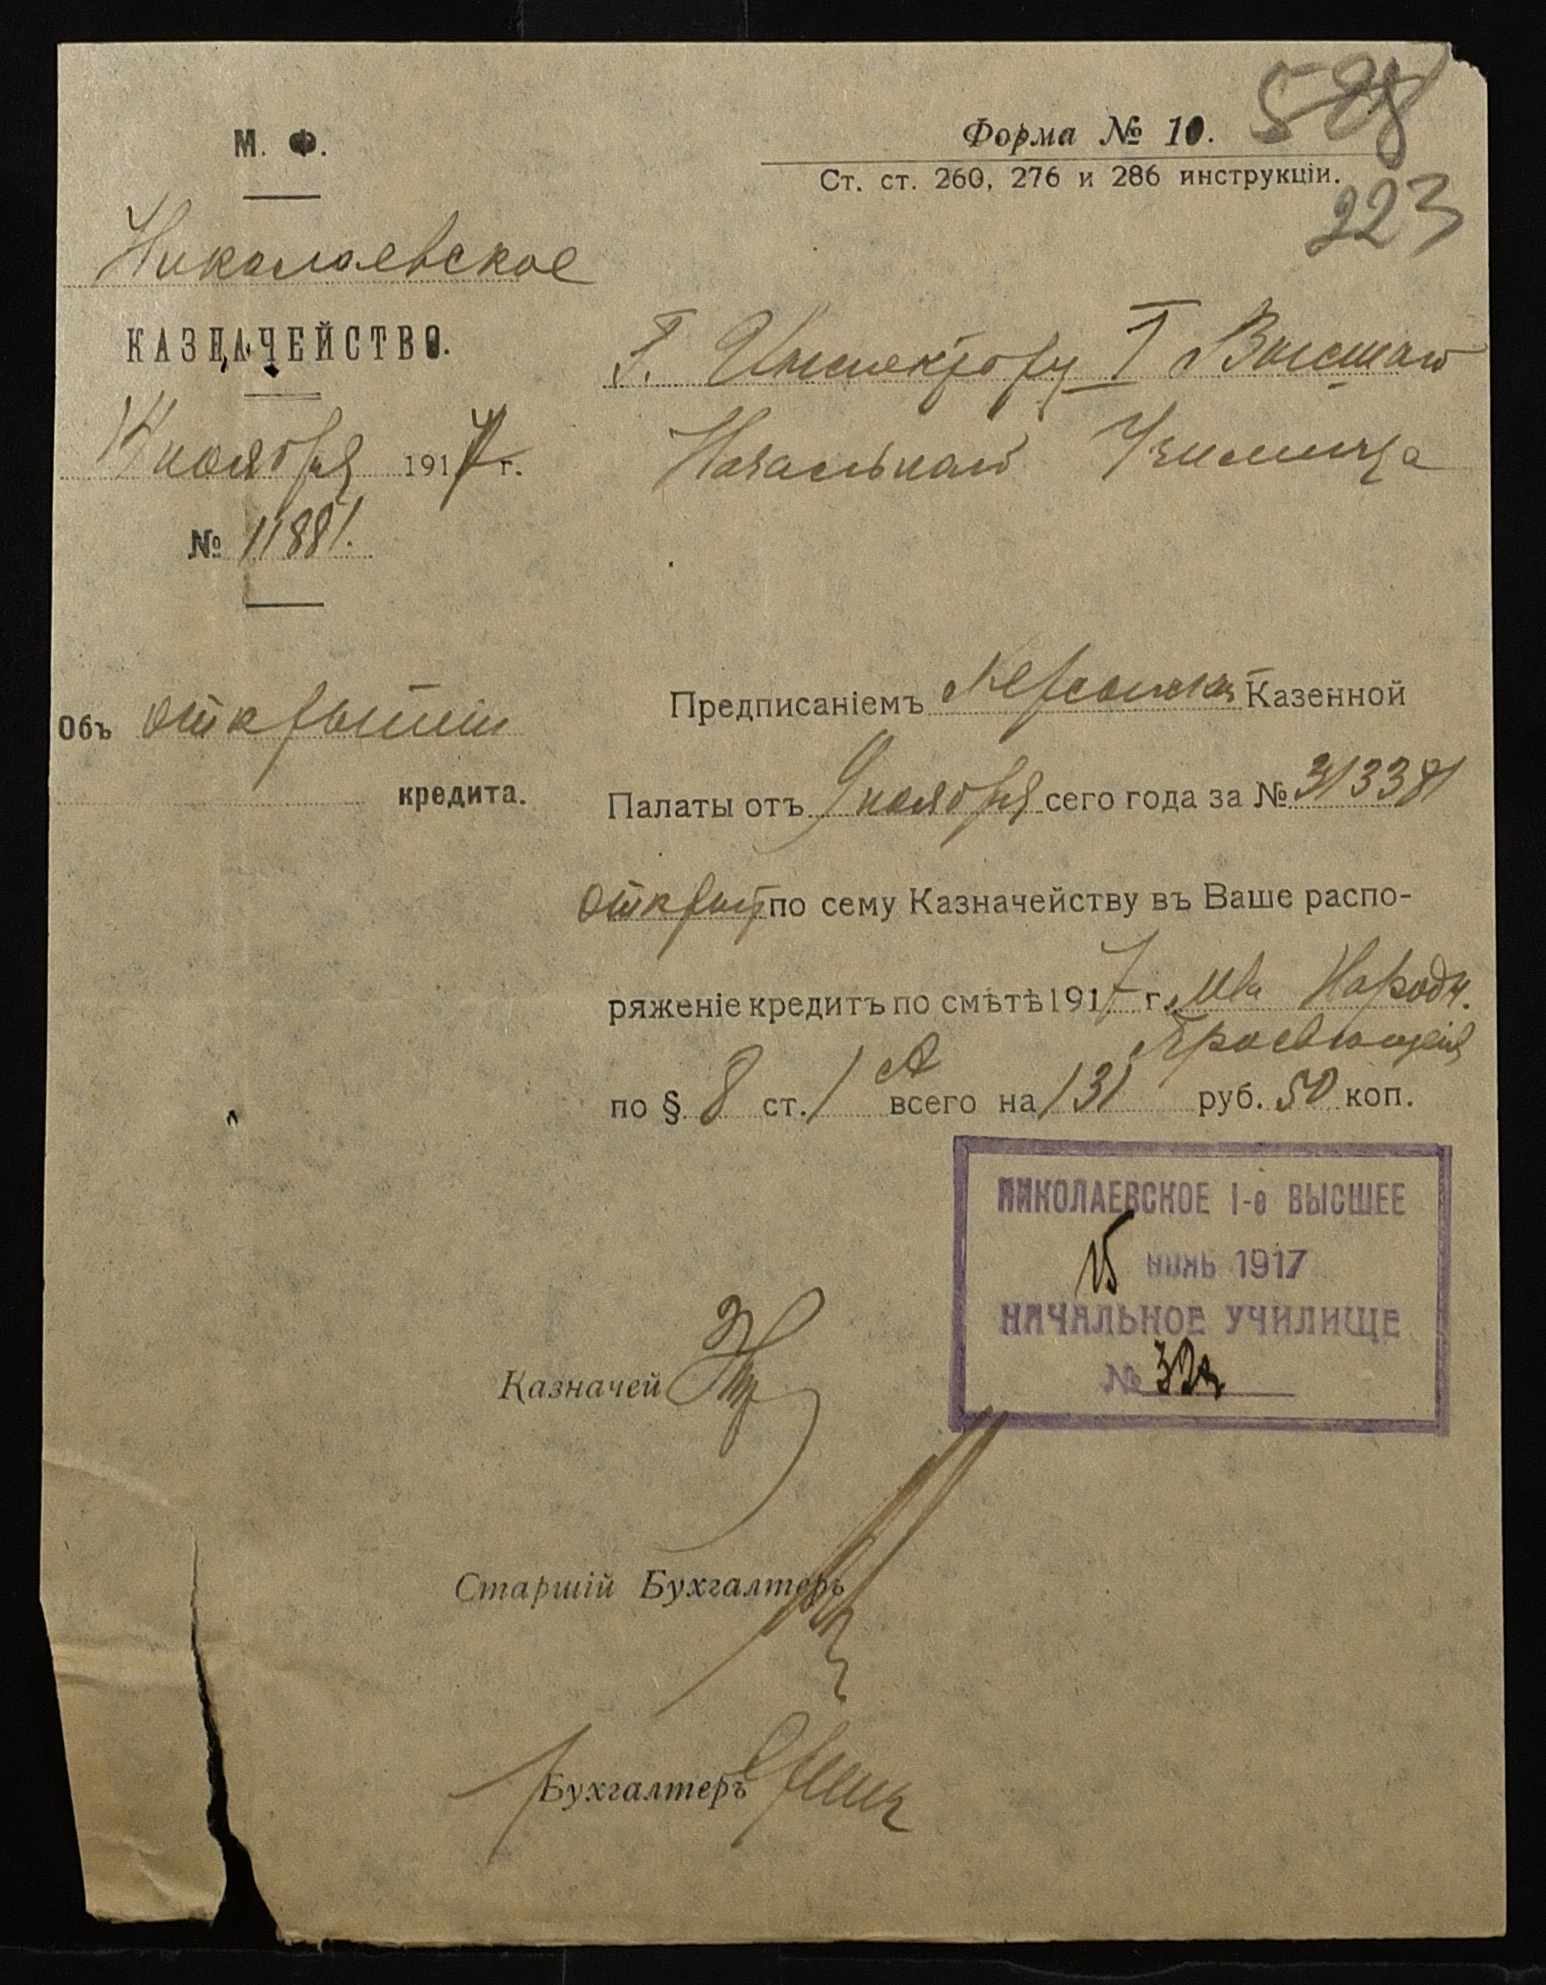 М. Ф.
Форма № 10.
588
Ст. ст. 260, 276 и 286 инструкціи.
223
Николаевское
КАЗНАЧЕЙСТВО.
Г. Инспектору I Высшаго
14 ноября 1917 г.
Начальнаго Училища
№ 11881.
Объ открытіи
кредита.
Предписаніемъ Херсонской Казенной
Палаты отъ 9 ноября сего года за № 313381
открытъ по сему Казначейству въ Ваше распо-
ряженіе кредитъ по смѣтѣ 1917 г. М-ва Народн.
Просвѣщенія
по § 8 ст. 1 А всего на 131 руб. 50 коп.
НИКОЛАЕВСКОЕ I-е ВЫСШЕЕ
15 НОЯБ 1917
НАЧАЛЬНОЕ УЧИЛИЩЕ
№
Казначей
Старшій Бухгалтеръ
Бухгалтеръ